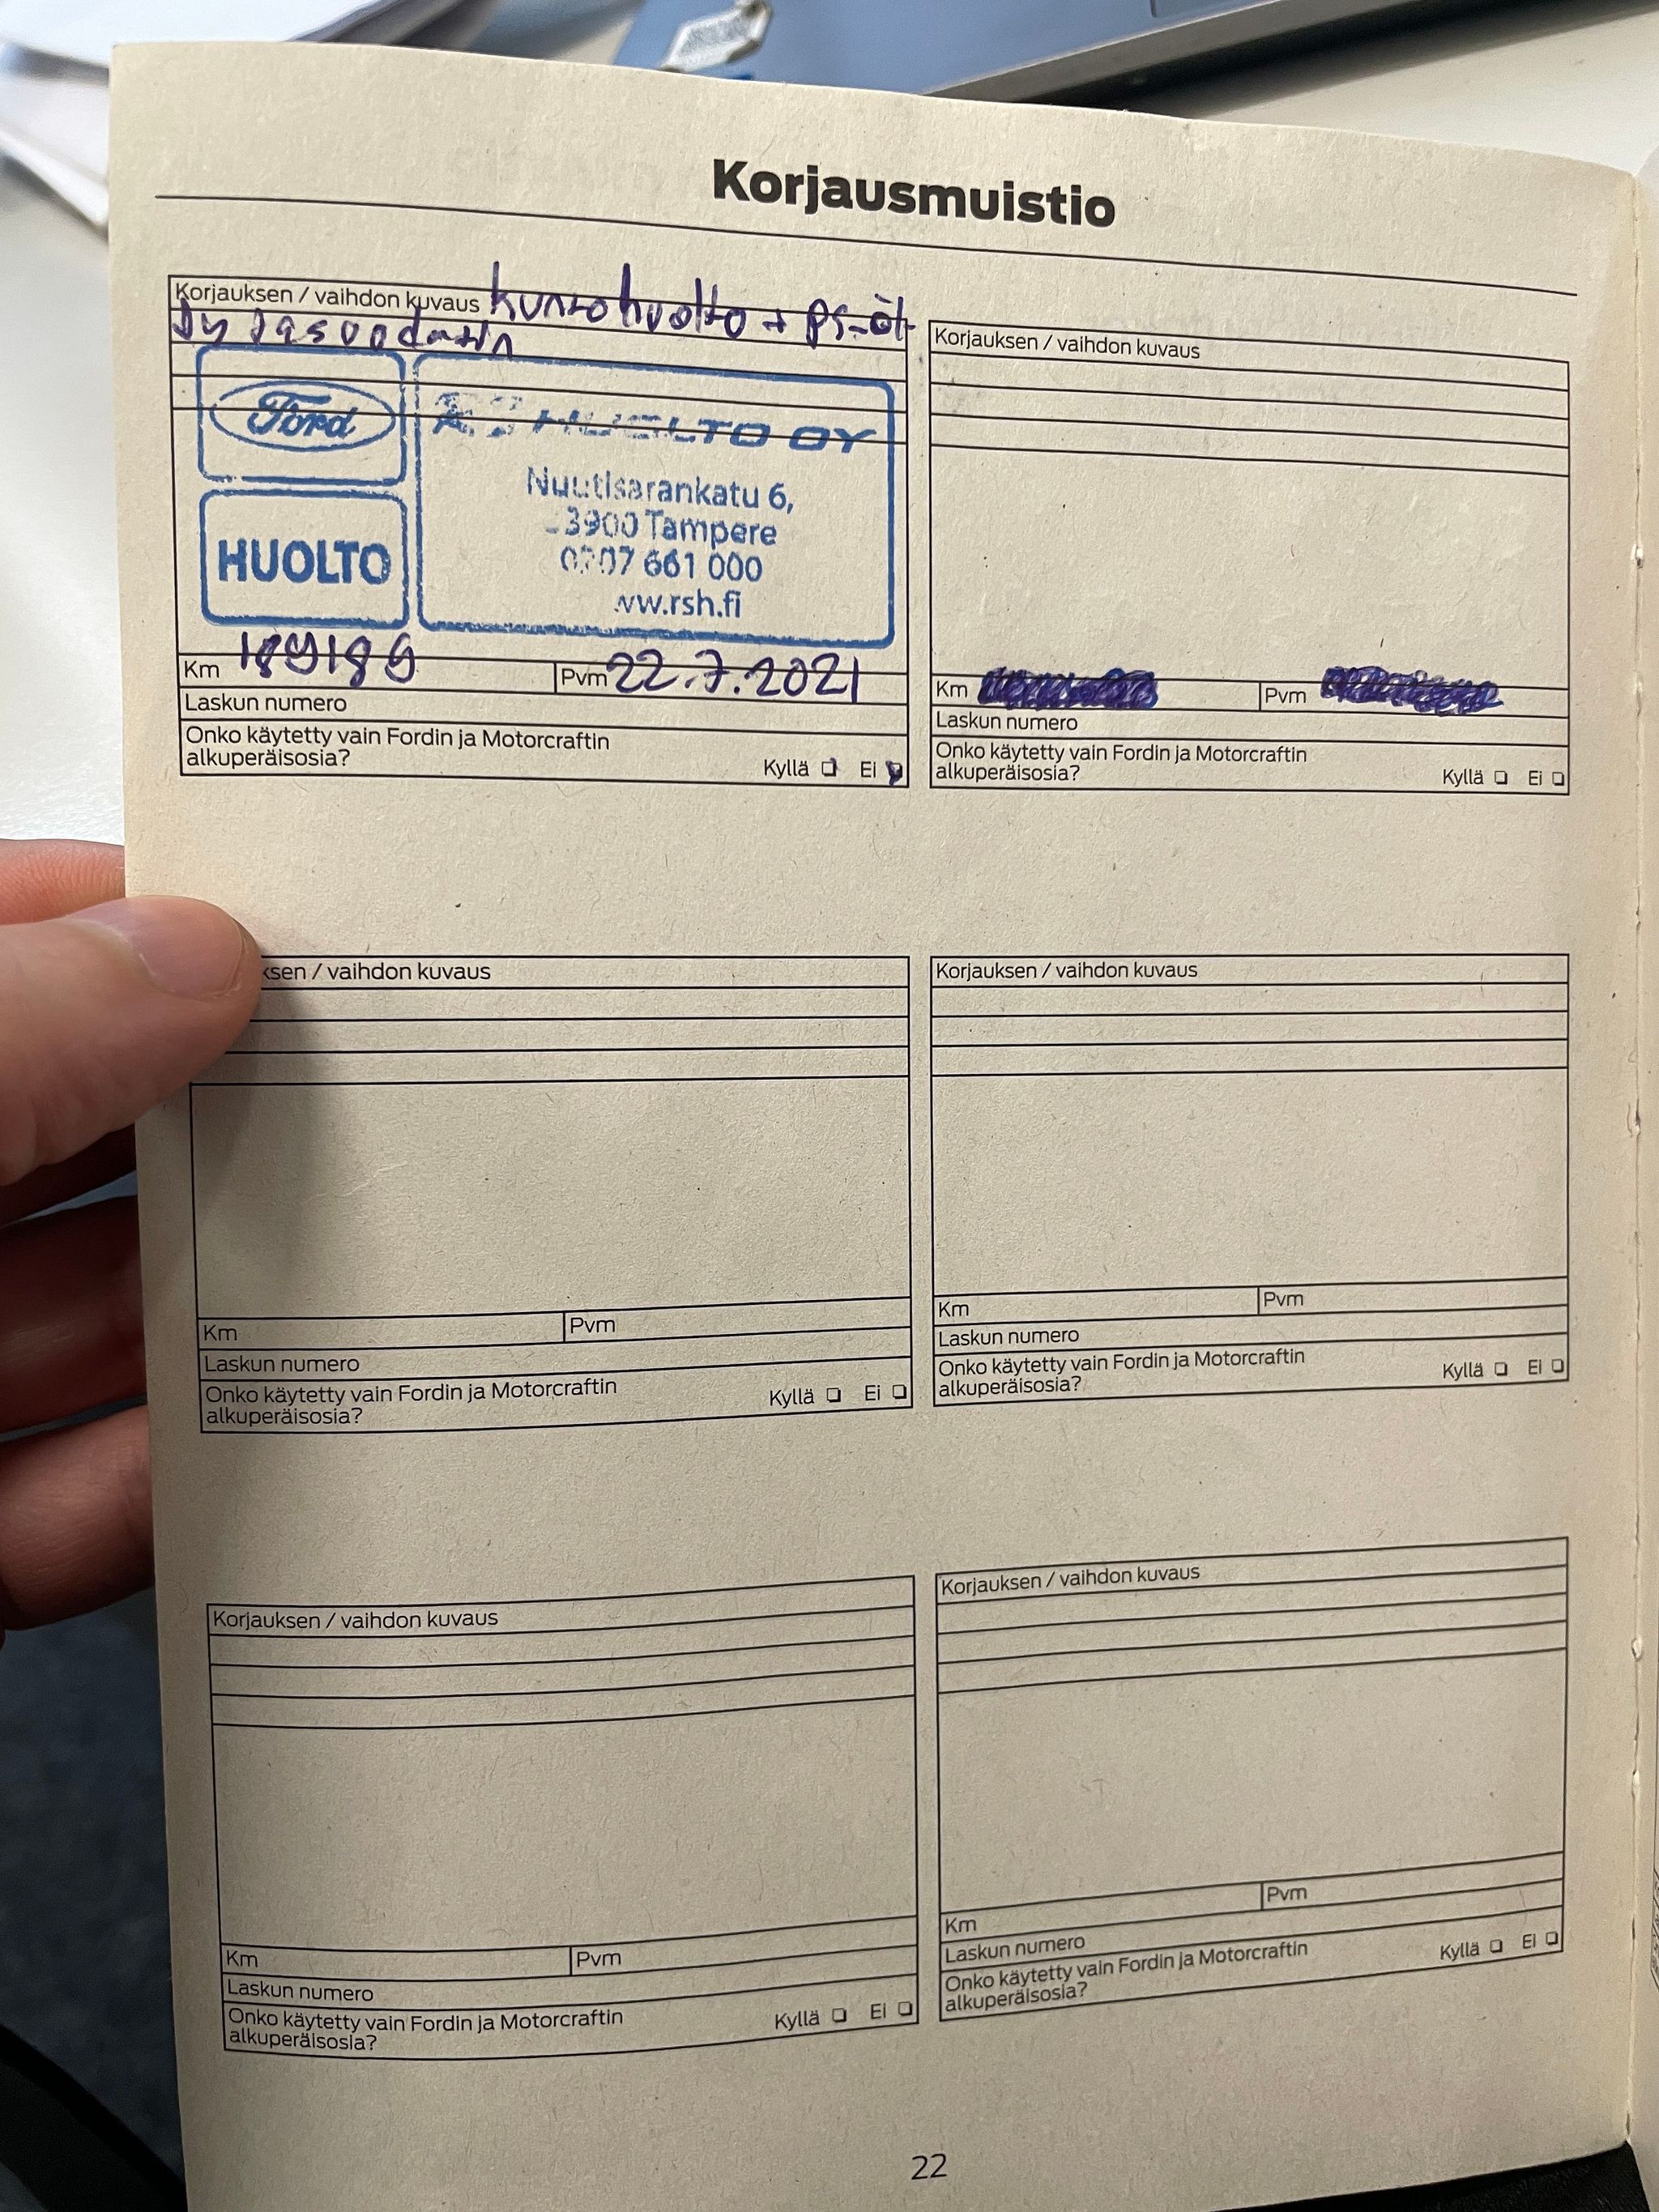 Korjausmuistio
Korjauksen / vaihdon kuvaus kuntohuolto + ps-öl
jy ja suodatin
Ford
HUOLTO OY
Nuutisarankatu 6,
3900 Tampere
0207 661 000
HUOLTO
ww.rsh.fi
Km 189189
Pvm 22.7.2021
Laskun numero
Onko käytetty vain Fordin ja Motorcraftin
alkuperäisosia?
Kyllä Ei
Korjauksen / vaihdon kuvaus
Km
Pvm
Laskun numero
Onko käytetty vain Fordin ja Motorcraftin
alkuperäisosia?
Kyllä Ei
ksen / vaihdon kuvaus
Km
Pvm
Laskun numero
Onko käytetty vain Fordin ja Motorcraftin
alkuperäisosia?
Kyllä Ei
Korjauksen / vaihdon kuvaus
Km
Pvm
Laskun numero
Onko käytetty vain Fordin ja Motorcraftin
alkuperäisosia?
Kyllä Ei
Korjauksen / vaihdon kuvaus
Km
Pvm
Laskun numero
Onko käytetty vain Fordin ja Motorcraftin
alkuperäisosia?
Kyllä Ei
Korjauksen / vaihdon kuvaus
Km
Pvm
Laskun numero
Onko käytetty vain Fordin ja Motorcraftin
alkuperäisosia?
Kyllä Ei
22